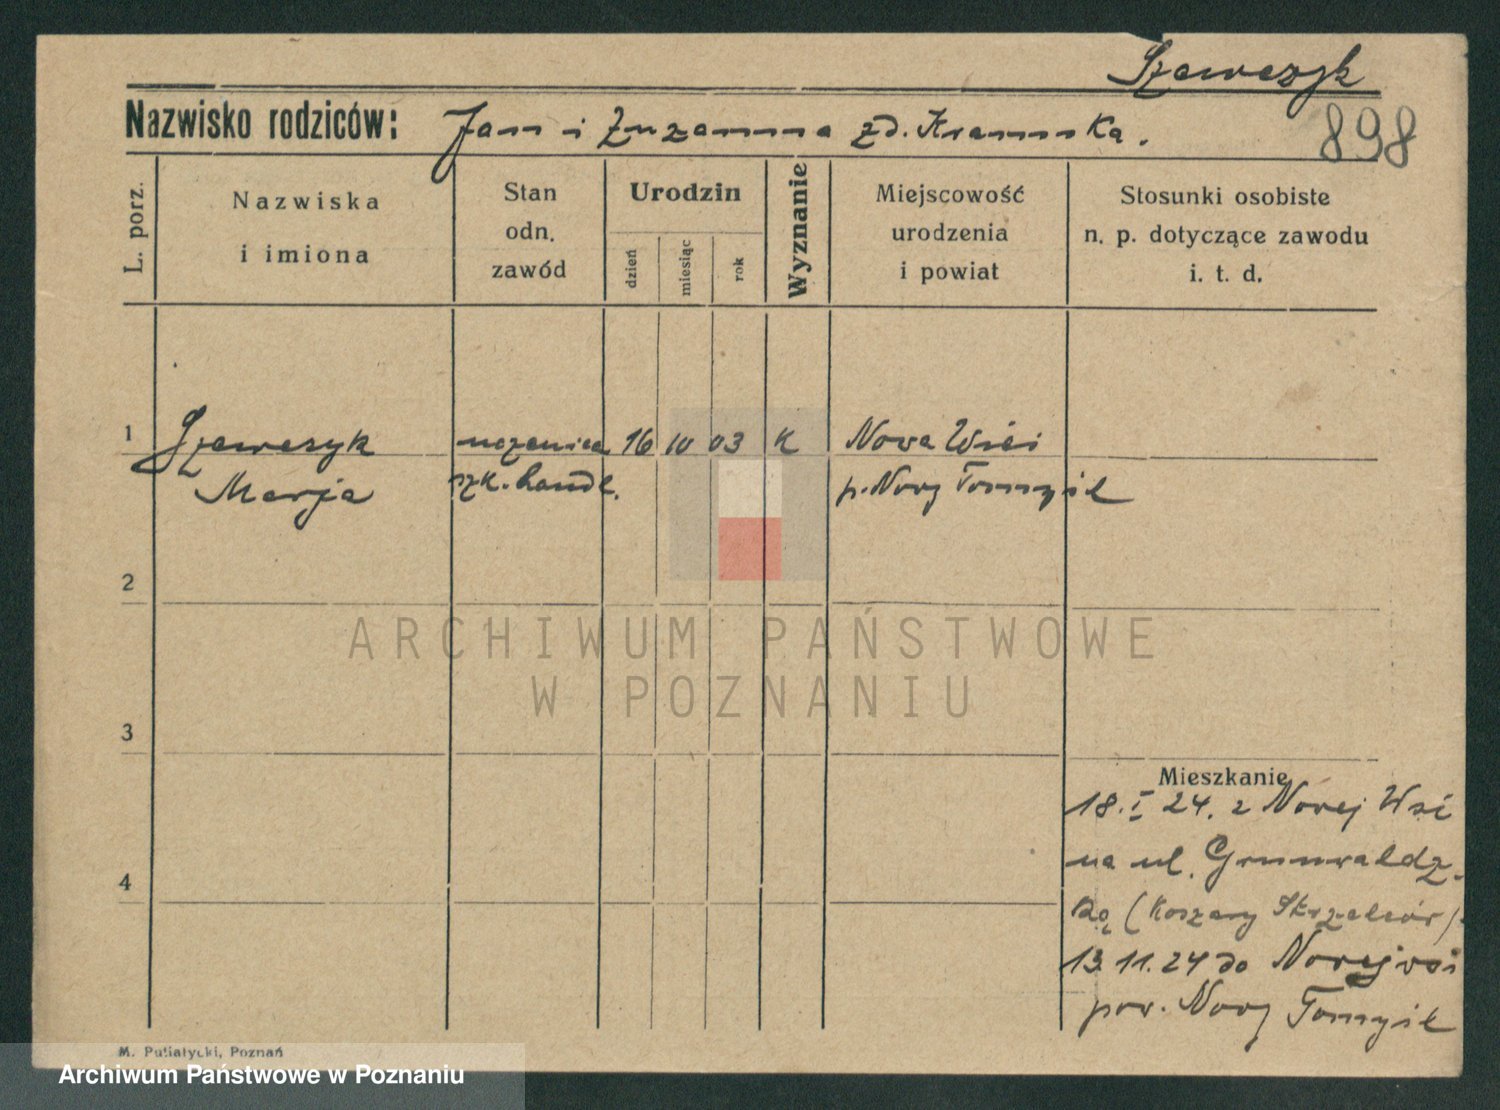 Szawczyk
Nazwisko rodziców: Jan i Zuzanna zd. Kramska.
898
L. porz.
Nazwiska
i imiona
Stan
odn.
zawód
Urodzin
dzień
miesiąc
rok
Wyznanie
Miejscowość
urodzenia
i powiat
Stosunki osobiste
n. p. dotyczące zawodu
i. t. d.
1 Szawczyk uczenica 16 10 03 K Nowa Wieś
Marja szk. handl. p. Nowy Tomyśl
2
ARCHIWUM PAŃSTWOWE
W POZNANIU
3
Mieszkanie
18. I 24. z Nowej Wsi
na ul. Grunwaldz-
4
ką (Koszary Strzelców).
13.11.24 do Nowej wsi
pow. Nowy Tomyśl
M. Putiatycki, Poznań
Archiwum Państwowe w Poznaniu